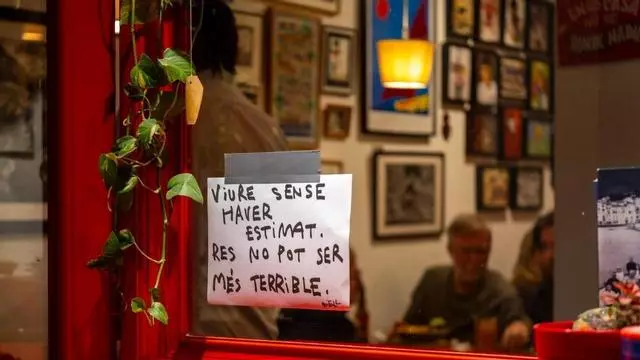 VIURE SENSE
HAVER
ESTIMAT.
RES NO POT SER
MÉS TERRIBLE.